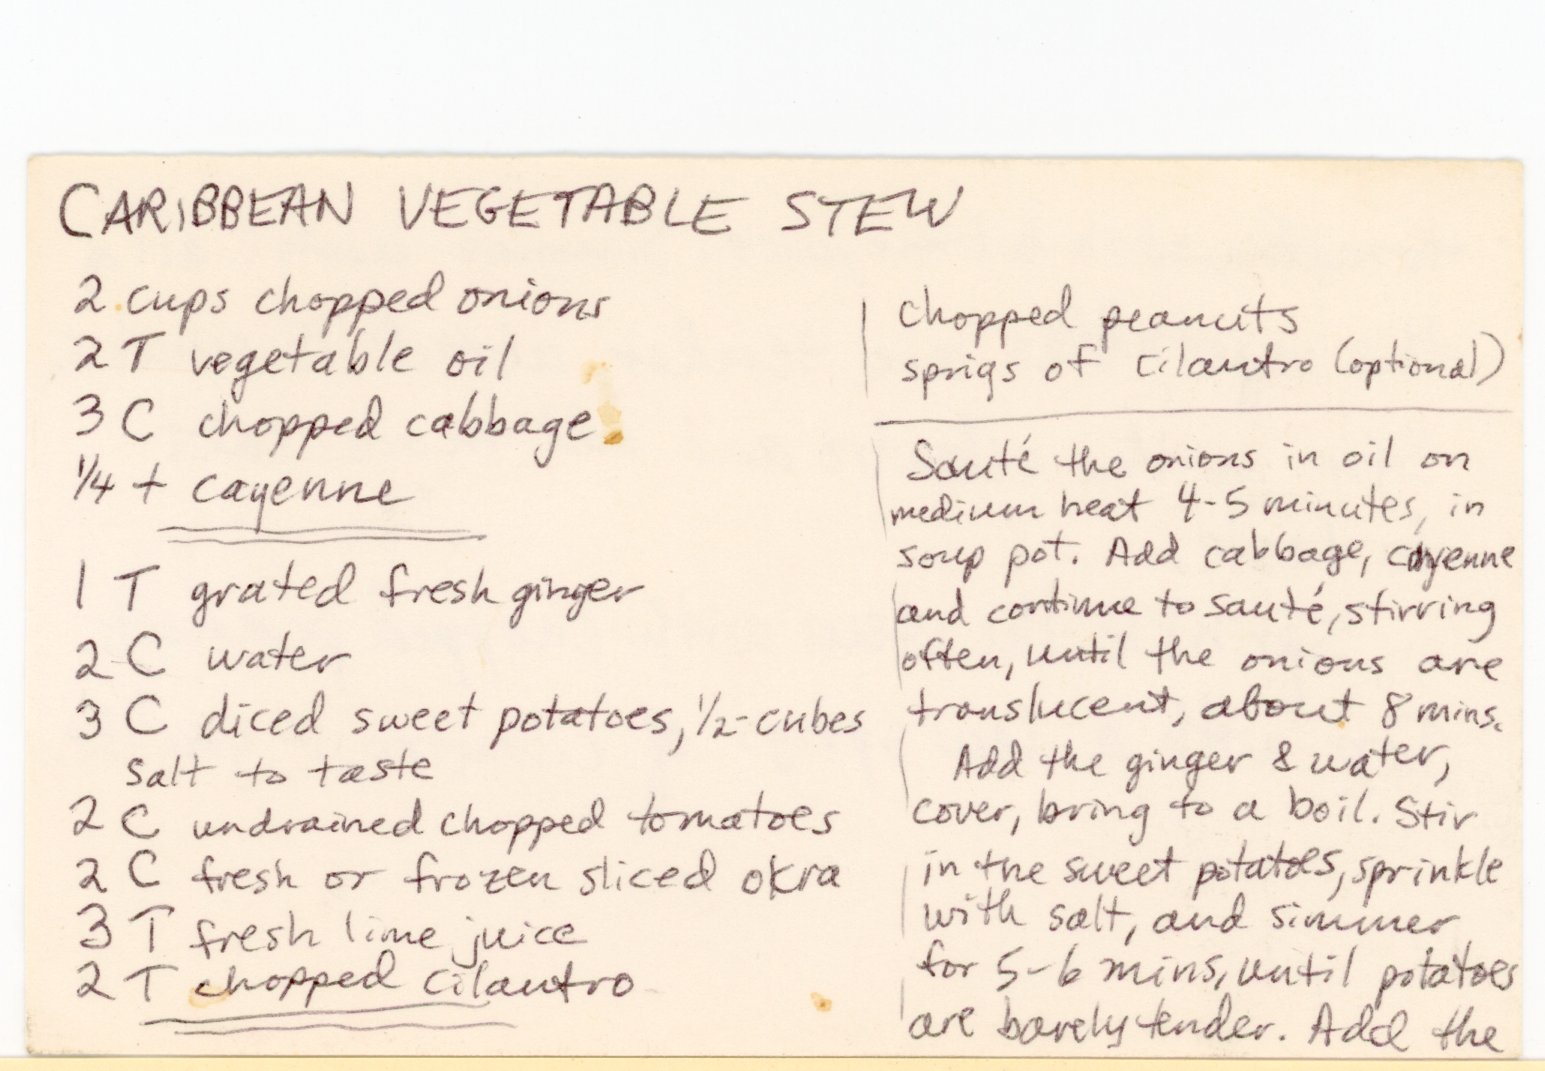 CARIBBEAN VEGETABLE STEW
2 cups chopped onions
2 T vegetable oil
3 C chopped cabbage
1/4 t cayenne
1 T grated fresh ginger
2 C water
3 C diced sweet potatoes, 1/2-cubes
salt to taste
2 C undrained chopped tomatoes
2 C fresh or frozen sliced okra
3 T fresh lime juice
2 T chopped cilantro
chopped peanuts
sprigs of cilantro (optional)
Sauté the onions in oil on
medium heat 4-5 minutes, in
soup pot. Add cabbage, cayenne
and continue to sauté, stirring
often, until the onions are
translucent, about 8 mins.
Add the ginger & water,
cover, bring to a boil. Stir
in the sweet potatoes, sprinkle
with salt, and simmer
for 5-6 mins, until potatoes
are barely tender. Add the